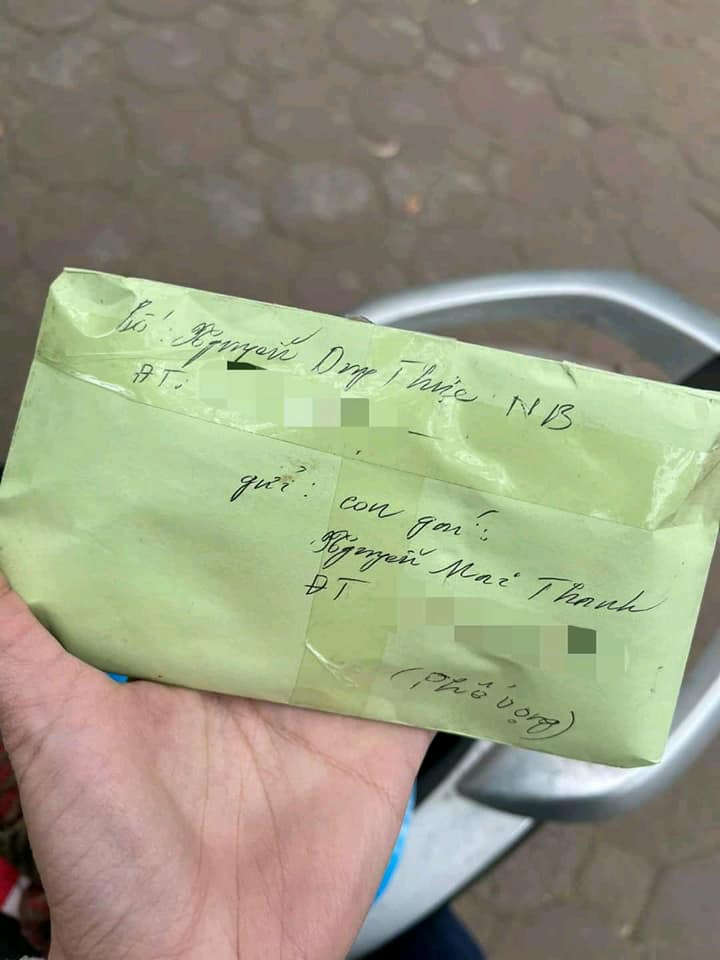 Bố: Nguyễn Duy Thức NB
ĐT:
gửi: con gái:
Nguyễn Mai Thanh
ĐT
(Phố Vọng)